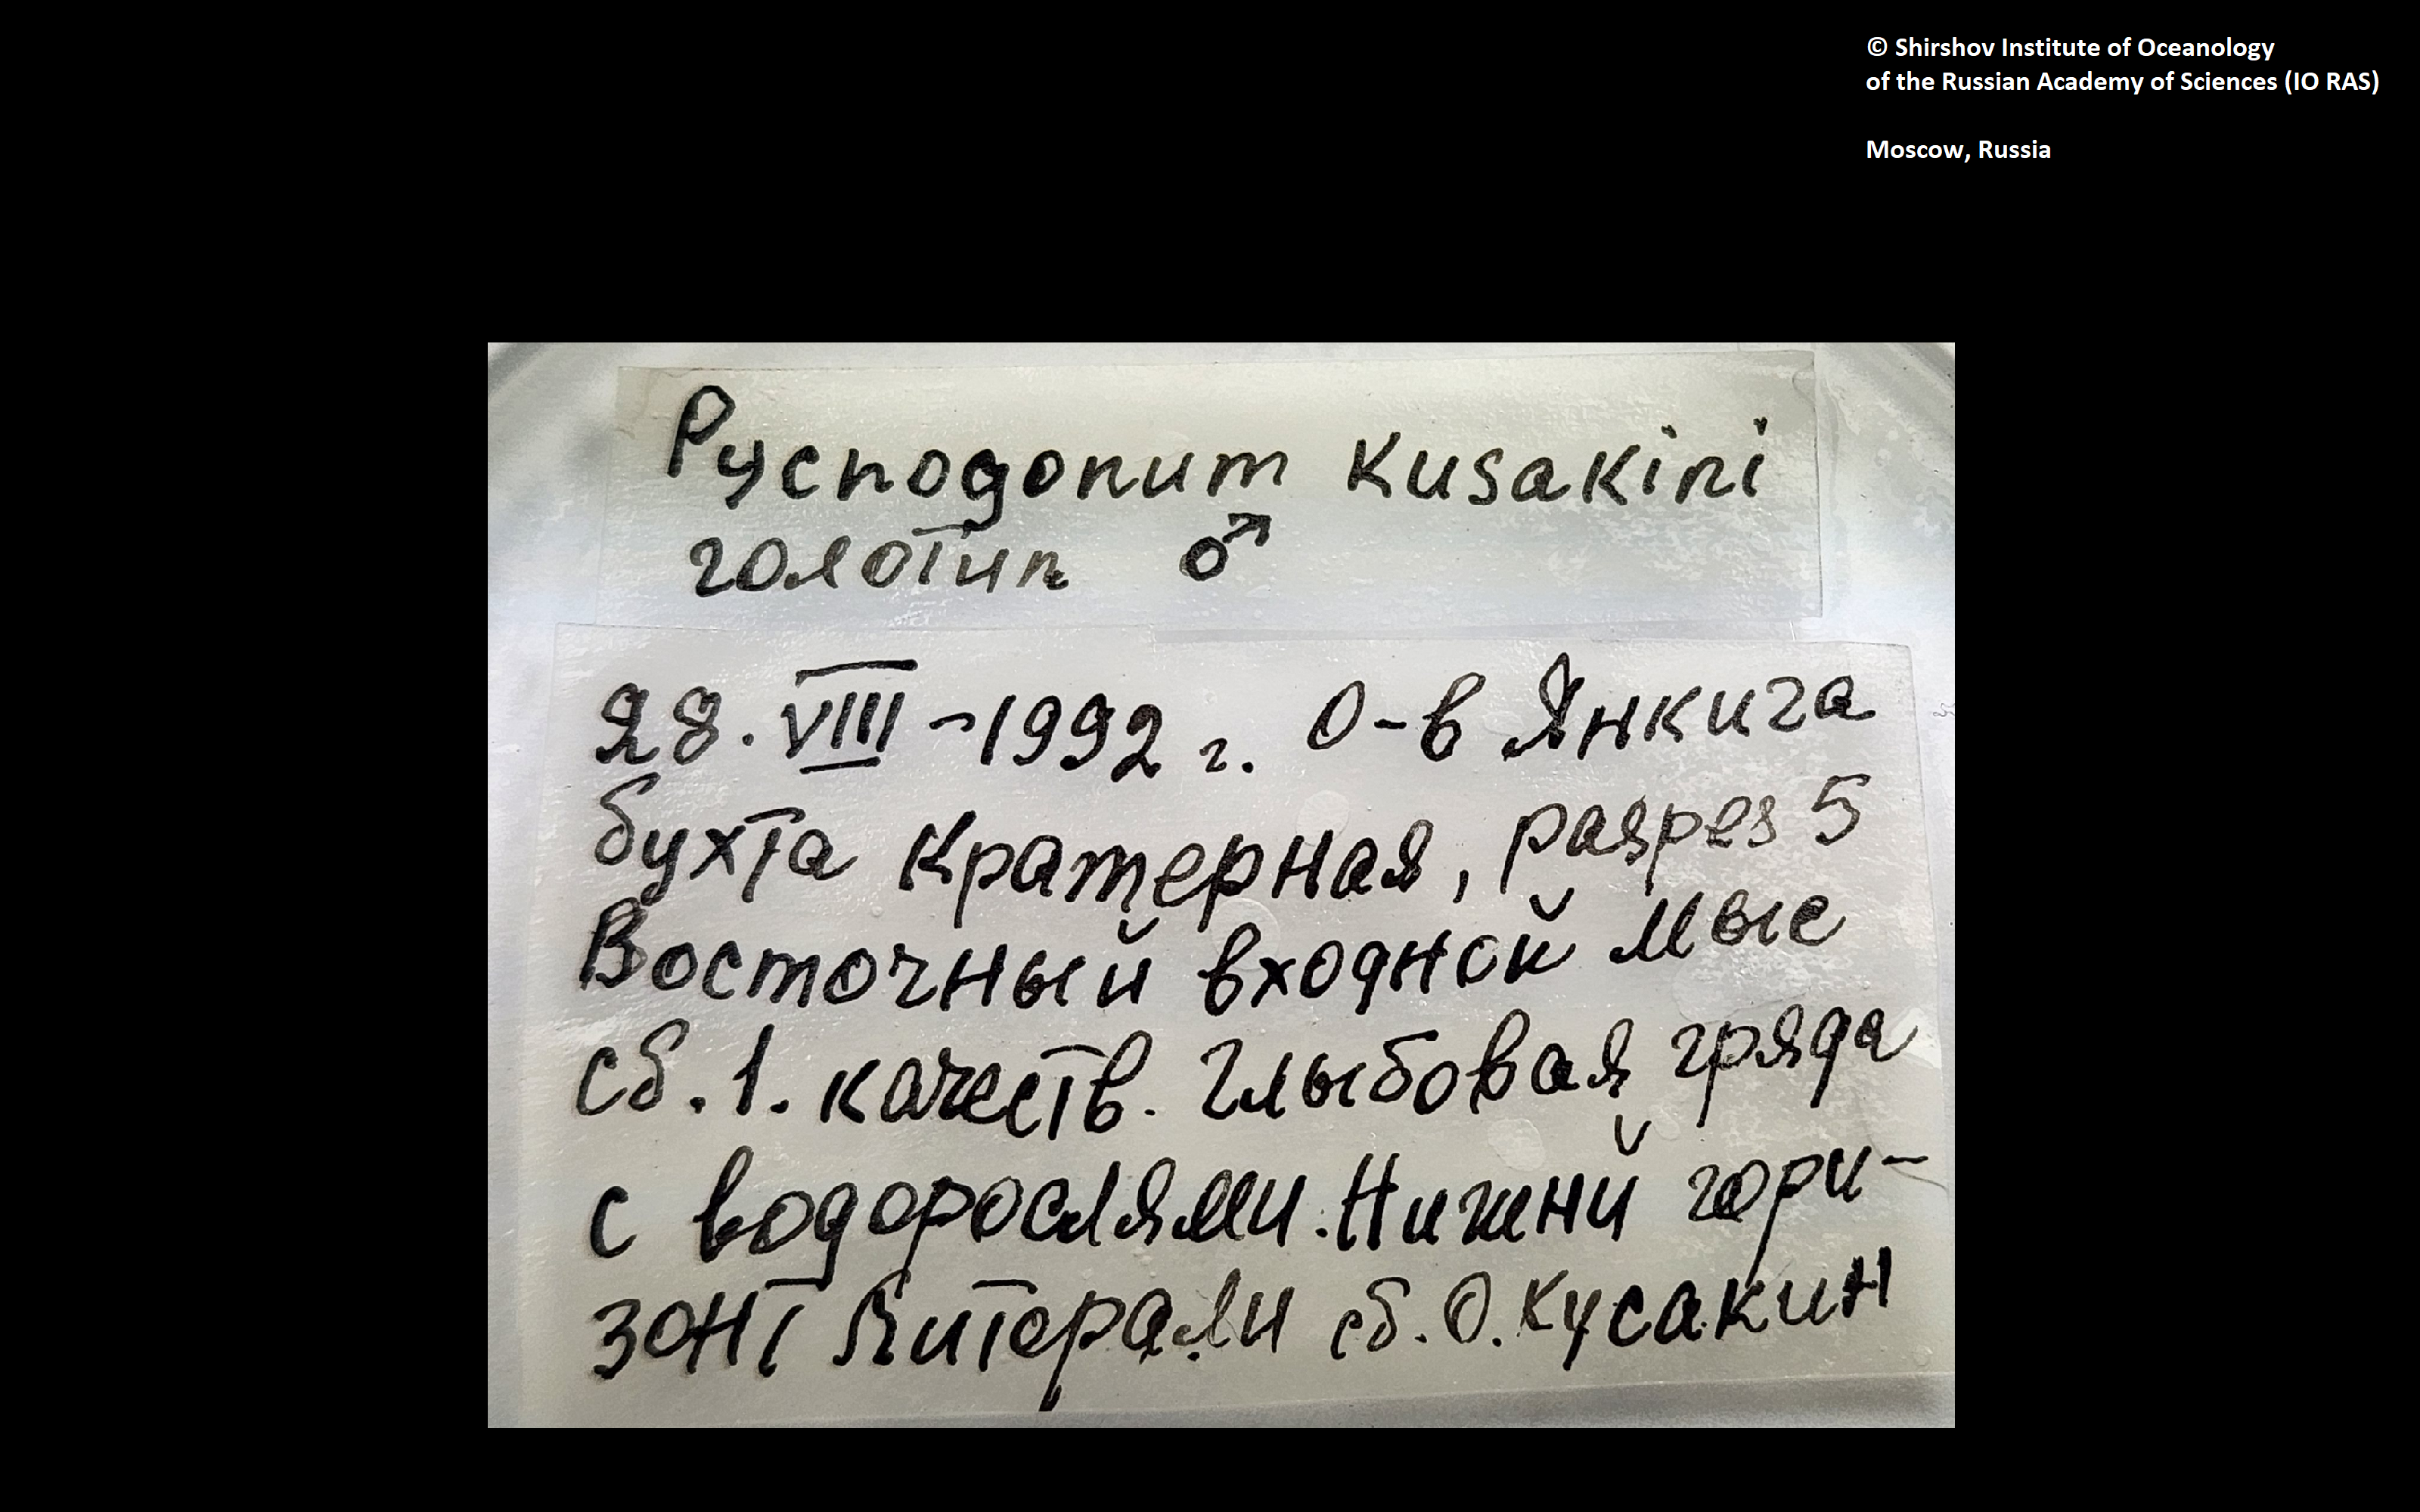 © Shirshov Institute of Oceanology
of the Russian Academy of Sciences (IO RAS)
Moscow, Russia
Pycnogonum Kusakini
голотип ♂
28.VIII-1992 г. О-в Янкига
бухта Кратерная, разрез 5
Восточный входной мыс
сб. 1. качеств. Глыбовая гряда
с водорослями. Нижний гори-
зонт литорали сб. О. Кусакин